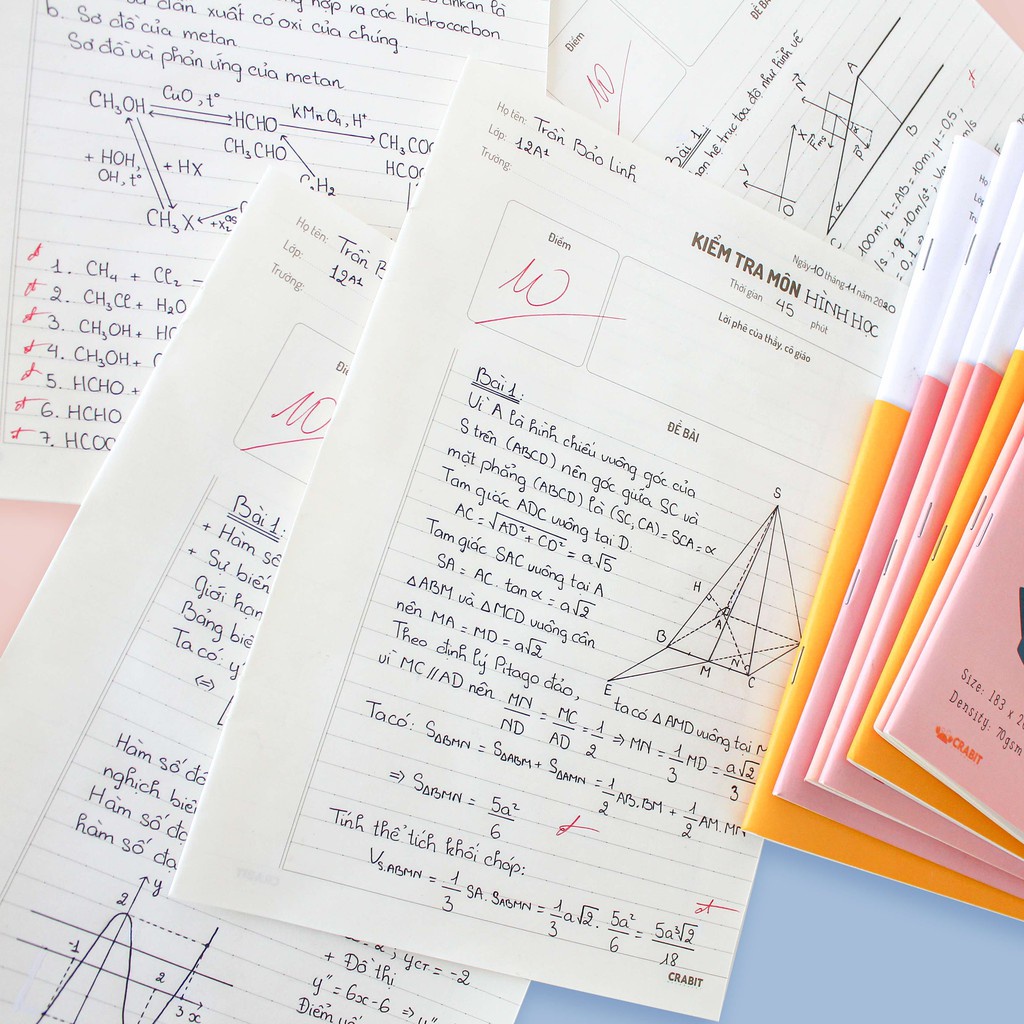 b. Sơ đồ của metan
Sơ đồ vài phản ứng của metan
CH₃OH
CuO, t°
HCHO
KMnO₄, H⁺
CH₃CHO
+ HOH,
OH, t°
+ HX
CH₃X
1. CH₄ + Cl₂
2. CH₃Cl + H₂O
3. CH₃OH +
4. CH₃OH +
5. HCHO +
6. HCHO
7.
Điểm
10
ĐỀ BÀI
Bài 1:
hệ trục toạ độ như hình vẽ
A
B
N
X
Y
O
α
Họ tên:
Lớp: 12A1
Trường:
10
Bài 1:
+ Hàm số
+ Sự biến
Giới hạn
Bảng
Ta có: y'
⇔
Hàm số
nghịch
Hàm số
hàm số
y
2
-1
2
3 x
+ Đồ thị
y" = 6x - 6 ⇒ y"
Họ tên: Trần Bảo Linh
Lớp: 12A1
Trường:
KIỂM TRA MÔN HÌNH HỌC
Ngày 10 tháng 11 năm 2020
Thời gian 45 phút
Điểm
10
Lời phê của thầy, cô giáo
ĐỀ BÀI
Bài 1:
Vì A là hình chiếu vuông góc của
S trên (ABCD) nên góc giữa SC và
mặt phẳng (ABCD) là (SC, CA) = SCA = α
Tam giác ADC vuông tại D:
AC = √AD² + CD² = a√5
Tam giác SAC vuông tại A
SA = AC. tan α = a√2
ΔABM và ΔMCD vuông cân
nên MA = MD = a√2
Theo định lý Pitago đảo, ta có ΔAMD vuông tại M
vì MC // AD nên MN/ND = MC/AD = 1/2 ⇒ MN = 1/3 MD = a√2/3
Ta có: SΔBMN = SΔABM + SΔAMN = 1/2 AB.BM + 1/2 AM.MN
⇒ SΔBMN = 5a²/6
Tính thể tích khối chóp:
V S.ABMN = 1/3 SA. SABMN = 1/3 a√2. 5a²/6 = 5a³√2/18
S
H
A
B
E
M
N
C
CRABIT
Size: 183 x 2
Density: 70gsm
CRABIT